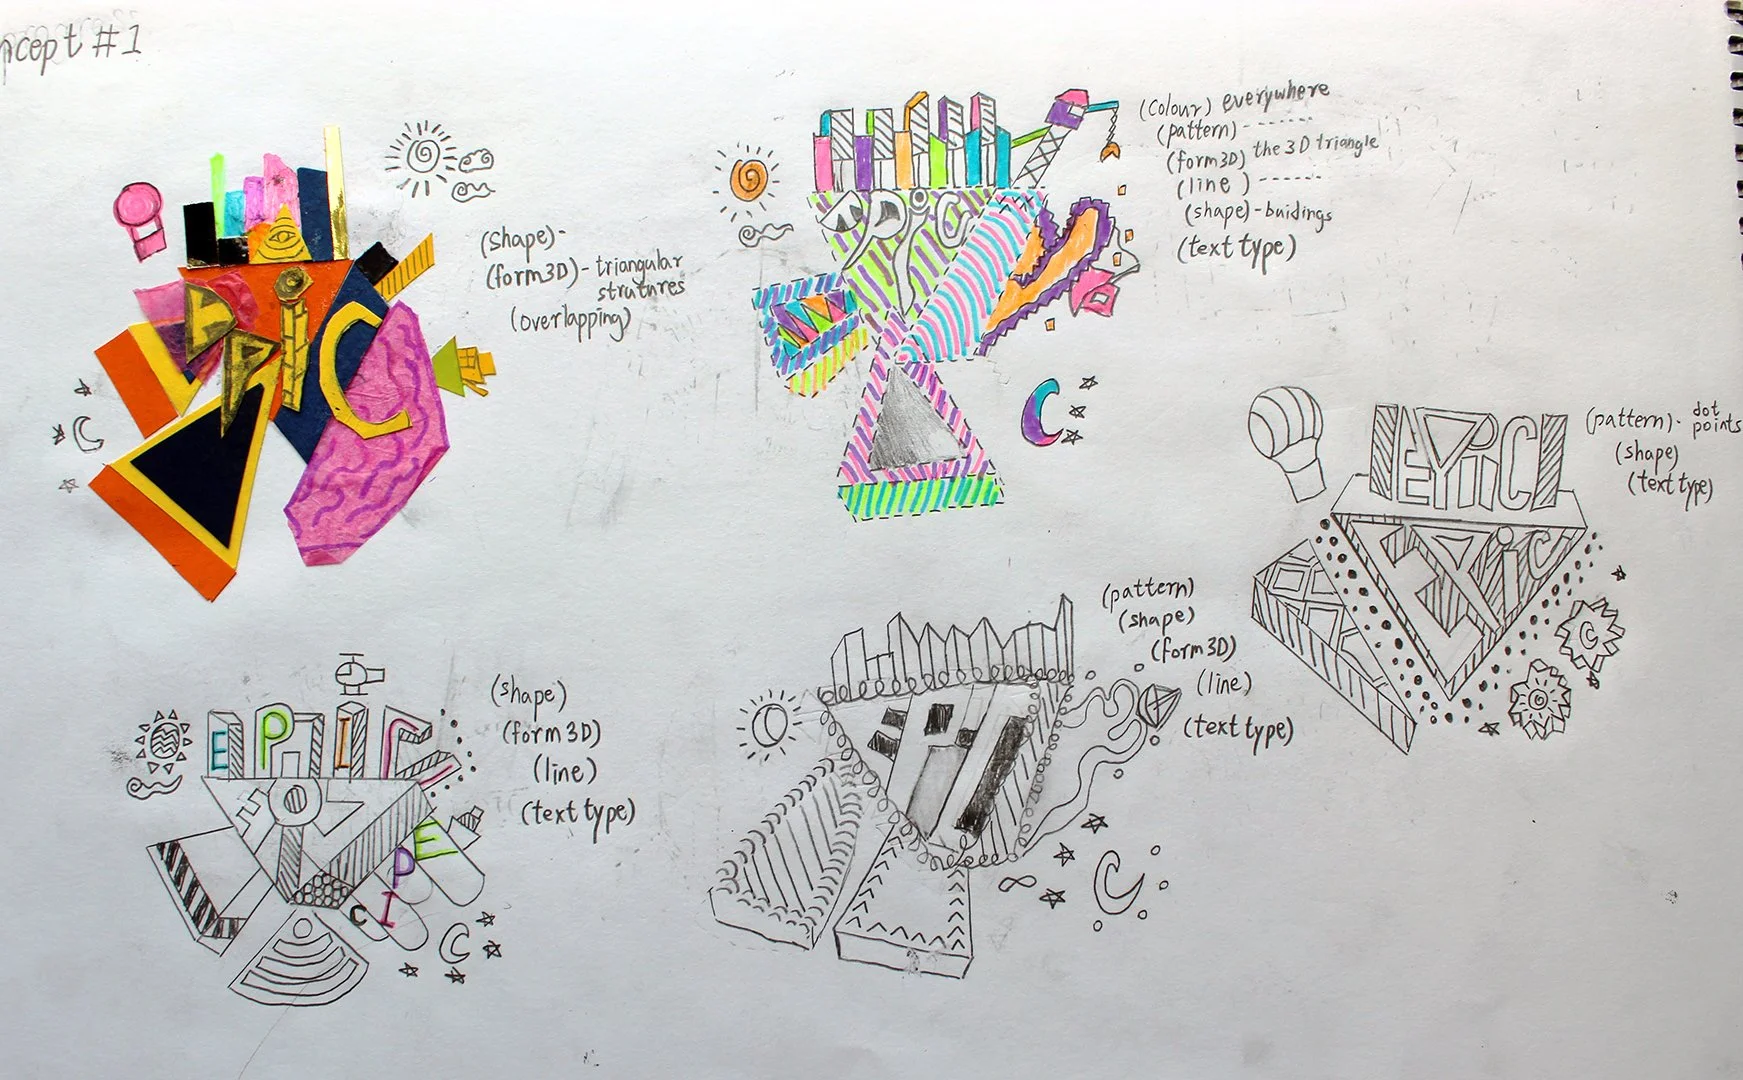 ncept #1
EPIC
(shape)-
(form3D)-triangular
strutures
(overlapping)
EPIC
(Colour) everywhere
(pattern)------
(form3D) the 3D triangle
(line )------
(shape)-buidings
(text type)
EPIC
EPIC
C
(pattern)- dot
points
(shape)
(text type)
EPIC
EPIC
(shape)
(form 3D)
(line)
(text type)
(pattern)
(shape)
(form3D)
(line)
(text type)